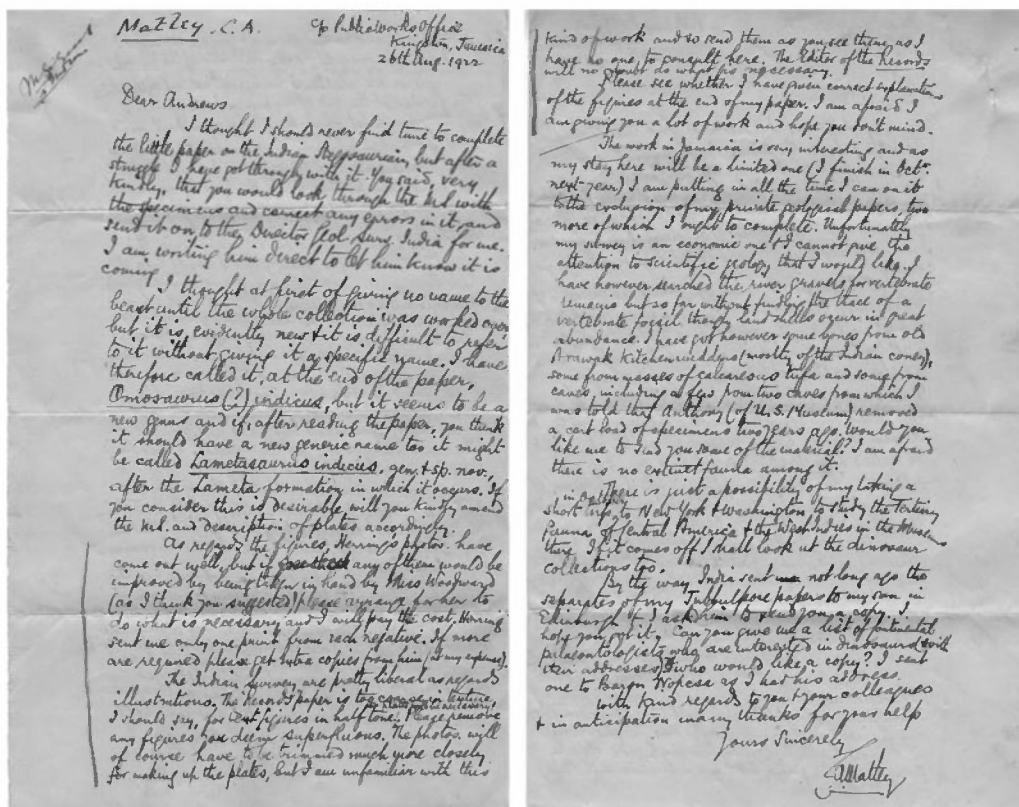 Matley. C.A.
c/o Public Works Office
Kingston, Jamaica
26th Aug. 1922
Dear Andrews
I thought I should never find time to complete
the little paper on the Indian Stegosaurian, but after a
struggle I have got through with it. You said, very
kindly, that you would look through the MS. with
the specimens and correct any errors in it, and
send it on to the Director Geol. Surv. India for me.
I am writing him direct to let him know it is
coming.
I thought at first of giving no name to the
beast until the whole collection was worked over
but it is evidently new & it is difficult to refer
to it without giving it a specific name. I have
therefore called it, at the end of the paper,
Omosaurus (?) indicus, but it seems to be a
new genus and if, after reading the paper, you think
it should have a new generic name too it might
be called Lametasaurus indicus, gen. & sp. nov.,
after the Lameta formation in which it occurs. If
you consider this is desirable, will you kindly amend
the MS. and description of plates accordingly.
As regards the figures, Herring's photos. have
come out well, but if any of them would be
improved by being taken in hand by Miss Woodward
(as I think you suggested) please arrange for her to
do what is necessary and I will pay the cost. Herring
sent me only one print from each negative. If more
are required please get extra copies from him (at my expense).
The Indian Survey are pretty liberal as regards
illustrations. The Records paper is too coarse in texture,
I should say, for text figures in half tone. Please remove
any figures you deem superfluous. The photos. will
of course have to be trimmed much more closely
for making up the plates, but I am unfamiliar with this
kind of work and so send them as you see them, as I
have no one to consult here. The Editor of the Records
will no doubt do what is necessary.
Please see whether I have given correct explanations
of the figures at the end of my paper. I am afraid I
am giving you a lot of work and hope you don't mind.
The work in Jamaica is very interesting and as
my stay here will be a limited one (I finish in Octr.
next year) I am putting in all the time I can on it
to the exclusion of my private geological papers, two
more of which I ought to complete. Unfortunately
my survey is an economic one & I cannot give the
attention to scientific geology that I would like. I
have however searched the river gravels for vertebrate
remains but so far without finding the trace of a
vertebrate fossil though land shells occur in great
abundance. I have got however some bones from old
Arawak Kitchen middens (mostly of the Indian coney),
some from masses of calcareous tufa and some from
caves, including a few from two caves from which I
was told that Anthony (of U.S. Museum) removed
a cart load of specimens two years ago. Would you
like me to send you some of the material? I am afraid
there is no extinct fauna among it.
There is just a possibility of my taking a
short trip to New York & Washington to study the Tertiary
Fauna of Central America & the West Indies in the Museums
there. If it comes off I shall look at the dinosaur
collections too.
By the way, India sent not long ago the
separates of my Jubbulpore papers to my son in
Edinburgh & I asked him to send you a copy. I
hope you got it. Can you give me a list of Continental
palaeontologists who are interested in dinosaurs (with
their addresses) & who would like a copy? I sent
one to Baron Nopcsa as I had his address.
With kind regards to you & your colleagues
& in anticipation many thanks for your help
Yours sincerely
CA Matley